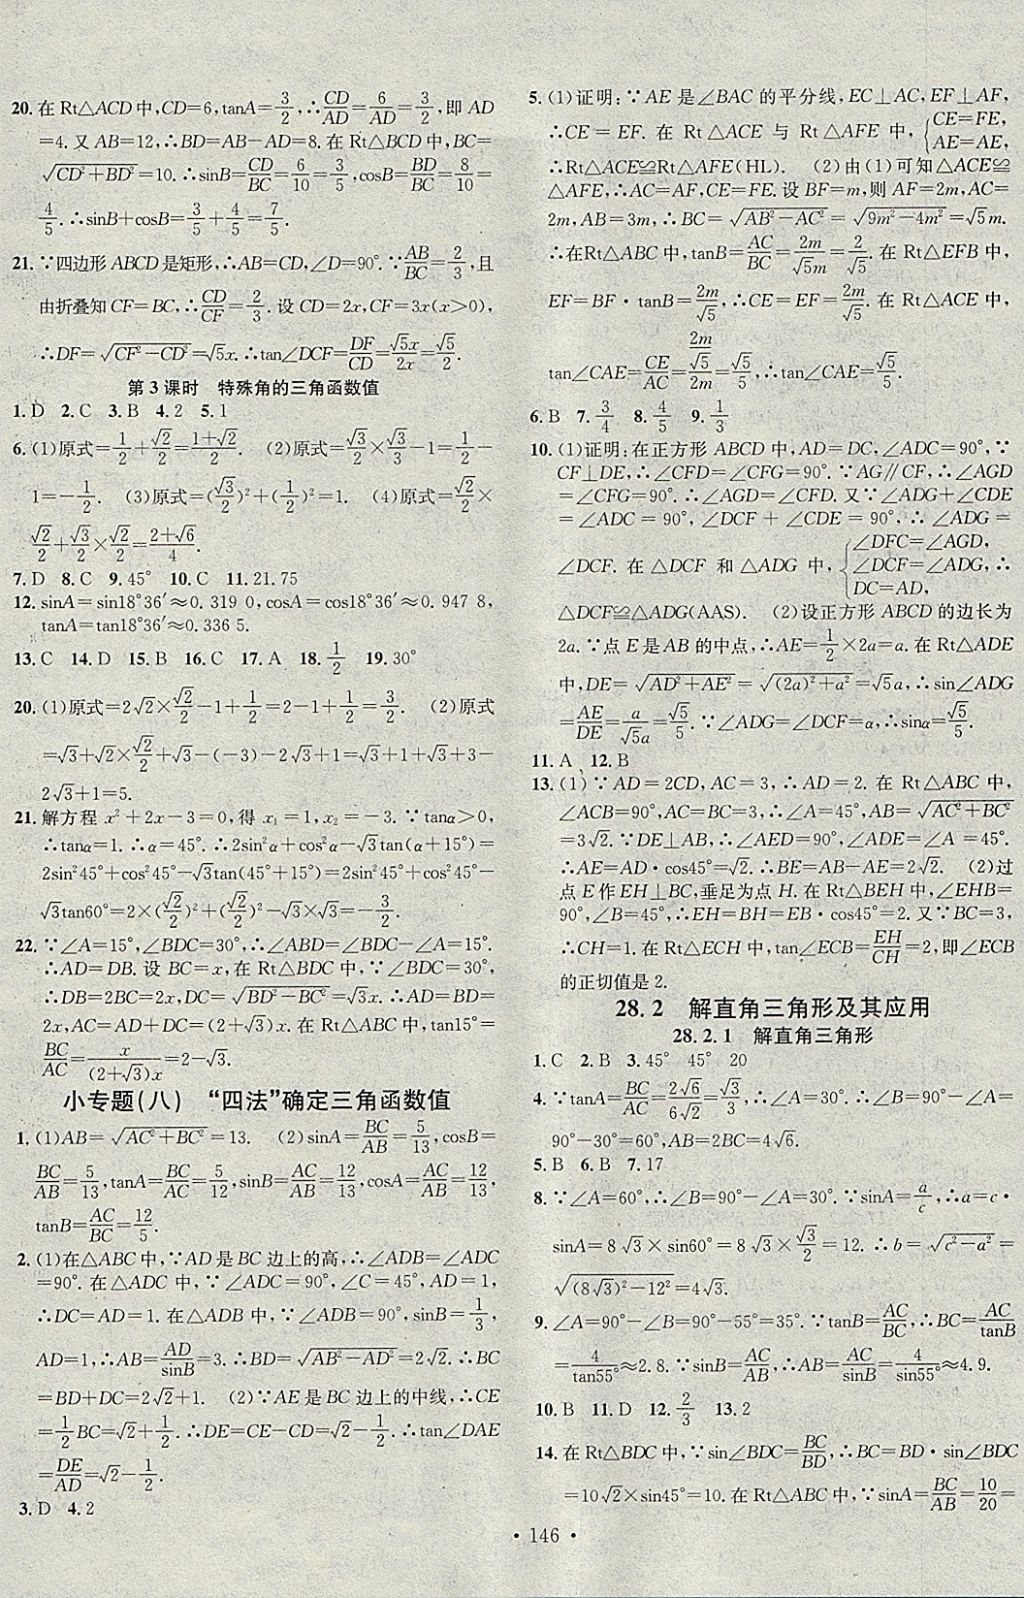 20. 在 Rt△ACD 中,CD=6,tanA=3/2,∴CD/AD=6/AD=3/2,即 AD
=4. 又 AB=12,∴BD=AB-AD=8. 在 Rt△BCD 中,BC=
√(CD²+BD²)=10. ∴sinB=CD/BC=6/10=3/5,cosB=BD/BC=8/10=
4/5. ∴sinB+cosB=3/5+4/5=7/5.
21. ∵四边形 ABCD 是矩形,∴AB=CD,∠D=90°. ∵AB/BC=2/3,且
由折叠知 CF=BC,∴CD/CF=2/3. 设 CD=2x,CF=3x(x>0),
∴DF=√(CF²-CD²)=√5x. ∴tan∠DCF=DF/CD=√5x/2x=√5/2.
第 3 课时 特殊角的三角函数值
1. D 2. C 3. B 4. 2 5. 1
6. (1)原式=1/2+√2/2=(1+√2)/2. (2)原式=√3/2×√3/3-1=1/2-
1=-1/2. (3)原式=(√3/2)²+(1/2)²=1. (4)原式=√2/2×
√2/2+√3/2×√2/2=(2+√6)/4.
7. D 8. C 9. 45° 10. C 11. 21.75
12. sinA=sin18°36′≈0.319 0,cosA=cos18°36′≈0.947 8,
tanA=tan18°36′≈0.336 5.
13. C 14. D 15. B 16. C 17. A 18. 1/2 19. 30°
20. (1)原式=2√2×√2/2-1+1/2=2-1+1/2=3/2. (2)原式
=√3+√2×√2/2+√3-(-3)-2√3+1=√3+1+√3+3-
2√3+1=5.
21. 解方程 x²+2x-3=0,得 x₁=1,x₂=-3. ∵tanα>0,
∴tanα=1. ∴α=45°. ∴2sin²α+cos²α-√3tan(α+15°)=
2sin²45°+cos²45°-√3tan(45°+15°)=2sin²45°+cos²45°-
√3tan60°=2×(√2/2)²+(√2/2)²-√3×√3=-3/2.
22. ∵∠A=15°,∠BDC=30°,∴∠ABD=∠BDC-∠A=15°.
∴AD=DB. 设 BC=x,在 Rt△BDC 中,∵∠BDC=30°,
∴DB=2BC=2x,DC=√(BD²-BC²)=√3x. ∴AD=DB=
2x,AC=AD+DC=(2+√3)x. 在 Rt△ABC 中,tan15°=
BC/AC=x/(2+√3)x=2-√3.
小专题(八) “四法”确定三角函数值
1. (1)AB=√(AC²+BC²)=13. (2)sinA=BC/AB=5/13,cosB=
BC/AB=5/13,tanA=BC/AC=5/12,sinB=AC/AB=12/13,cosA=AC/AB=12/13,
tanB=AC/BC=12/5.
2. (1)在△ABC 中,∵AD 是 BC 边上的高,∴∠ADB=∠ADC
=90°. 在△ADC 中,∵∠ADC=90°,∠C=45°,AD=1,
∴DC=AD=1. 在△ADB 中,∵∠ADB=90°,sinB=1/3,
AD=1,∴AB=AD/sinB=3. ∴BD=√(AB²-AD²)=2√2. ∴BC
=BD+DC=2√2+1. (2)∵AE 是 BC 边上的中线,∴CE
=1/2BC=√2+1/2. ∴DE=CE-CD=√2-1/2. ∴tan∠DAE
=DE/AD=√2-1/2.
3. D 4. 2
5. (1)证明:∵AE 是∠BAC 的平分线,EC⊥AC,EF⊥AF,
∴CE=EF. 在 Rt△ACE 与 Rt△AFE 中,{CE=FE, AE=AE,
∴Rt△ACE≌Rt△AFE(HL). (2)由(1)可知△ACE≌
△AFE,∴AC=AF,CE=FE. 设 BF=m,则 AF=2m,AC=
2m,AB=3m,∴BC=√(AB²-AC²)=√(9m²-4m²)=√5m.
∴在Rt△ABC 中,tanB=AC/BC=2m/√5m=2/√5. 在 Rt△EFB 中,
EF=BF·tanB=2m/√5,∴CE=EF=2m/√5. 在 Rt△ACE 中,
tan∠CAE=CE/AC=(2m/√5)/2m=√5/5,∴tan∠CAE=√5/5.
6. B 7. 3/4 8. 4/5 9. 1/3
10. (1)证明:在正方形 ABCD 中,AD=DC,∠ADC=90°,∵
CF⊥DE,∴∠CFD=∠CFG=90°. ∵AG∥CF,∴∠AGD
=∠CFG=90°. ∴∠AGD=∠CFD. 又∵∠ADG+∠CDE
=∠ADC=90°,∠DCF+∠CDE=90°,∴∠ADG=
∠DCF. 在△DCF 和△ADG 中,{∠DFC=∠AGD, ∠DCF=∠ADG, DC=AD, ∴
△DCF≌△ADG(AAS). (2)设正方形 ABCD 的边长为
2a. ∵点 E 是 AB 的中点,∴AE=1/2×2a=a. 在 Rt△ADE
中,DE=√(AD²+AE²)=√((2a)²+a²)=√5a,∴sin∠ADG
=AE/DE=a/√5a=√5/5. ∵∠ADG=∠DCF=α,∴sinα=√5/5.
11. A 12. B
13. (1)∵AD=2CD,AC=3,∴AD=2. 在 Rt△ABC 中,
∠ACB=90°,AC=BC=3,∴∠A=45°,AB=√(AC²+BC²)
=3√2. ∵DE⊥AB,∴∠AED=90°,∠ADE=∠A=45°.
∴AE=AD·cos45°=√2. ∴BE=AB-AE=2√2. (2)过
点 E 作 EH⊥BC,垂足为点 H. 在 Rt△BEH 中,∵∠EHB=
90°,∠B=45°,∴EH=BH=EB·cos45°=2. 又∵BC=3,
∴CH=1. 在 Rt△ECH 中,tan∠ECB=EH/CH=2,即∠ECB
的正切值是 2.
28.2 解直角三角形及其应用
28.2.1 解直角三角形
1. C 2. B 3. 45° 45° 20
4. ∵tanA=BC/AC=2√6/6√2=√3/3,∴∠A=30°. ∴∠B=90°-∠A=
90°-30°=60°,AB=2BC=4√6.
5. B 6. B 7. 17
8. ∵∠A=60°,∴∠B=90°-∠A=30°. ∵sinA=a/c,∴a=c·
sinA=8√3×sin60°=8√3×√3/2=12. ∴b=√(c²-a²)=
√((8√3)²-12²)=4√3.
9. ∠A=90°-∠B=90°-55°=35°. ∵tanB=AC/BC,∴BC=AC/tanB
=4/tan55°≈2.8. ∵sinB=AC/AB,∴AB=AC/sinB=4/sin55°≈4.9.
10. B 11. D 12. 2/3 13. 2
14. 在 Rt△BDC 中,∵sin∠BDC=BC/BD,∴BC=BD·sin∠BDC
=10√2×sin45°=10. 在 Rt△ABC 中,∵sinA=BC/AB=10/20=
· 146 ·